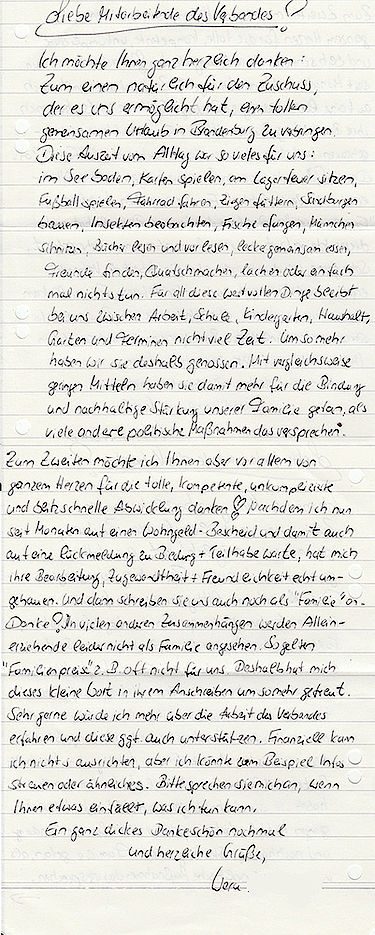 Liebe Mitarbeitende des Verbandes!
Ich möchte Ihnen ganz herzlich danken:
Zum einen natürlich für den Zuschuss,
der es uns ermöglicht hat, einen tollen
gemeinsamen Urlaub in Brandenburg zu verbringen.
Diese Auszeit vom Alltag war so vieles für uns:
im See baden, Karten spielen, am Lagerfeuer sitzen,
Fußball spielen, Fahrrad fahren, Ziegen füttern, Sandburgen
bauen, Insekten beobachten, Fische fangen, Männchen
schnitzen, Bücher lesen und vorlesen, lecker gemeinsam essen,
Freunde finden, Quatsch machen, lachen oder einfach
mal nichts tun. Für all diese wertvollen Dinge bleibt
bei uns zwischen Arbeit, Schule, Kindergarten, Haushalt,
Garten und Terminen nicht viel Zeit. Um so mehr
haben wir sie deshalb genossen. Mit vergleichsweise
geringen Mitteln haben sie damit mehr für die Bindung
und nachhaltige Stärkung unserer Familie getan, als
viele andere politische Maßnahmen das versprechen.
Zum Zweiten möchte ich Ihnen aber vor allem von
ganzem Herzen für die tolle, kompetente, unkomplizierte
und blitzschnelle Abwicklung danken! Nachdem ich nun
seit Monaten auf einen Wohngeld-Bescheid und damit auch
auf eine Rückmeldung zu Bildung + Teilhabe warte, hat mich
ihre Bearbeitung, Zugewandtheit + Freundlichkeit echt um-
gehauen. Und dann schreiben sie uns auch noch als "Familie" an.
Danke! In vielen anderen Zusammenhängen werden Allein-
erziehende leider nicht als Familie angesehen. So gelten
"Familienpreise" z.B. oft nicht für uns. Deshalb hat mich
dieses kleine Wort in ihrem Anschreiben um so mehr gefreut.
Sehr gerne würde ich mehr über die Arbeit des Verbandes
erfahren und diese ggf. auch unterstützen. Finanziell kann
ich nichts ausrichten, aber ich könnte zum Beispiel Infos
streuen oder ähnliches. Bitte sprechen sie mich an, wenn
Ihnen etwas einfällt, was ich tun kann.
Ein ganz dickes Dankeschön nochmal
und herzliche Grüße,
Vera